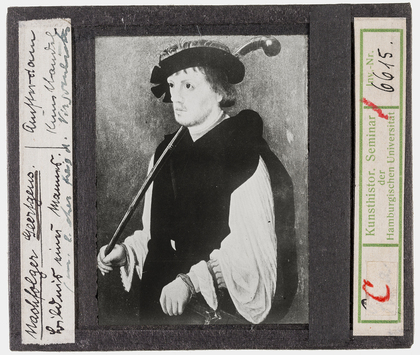 Nachfolger Geertgens.
Bildnis eines Mannes
Amsterdam
Kunsthandel
Kunsthistor. Seminar
der
Hamburgischen Universität
Inv.-Nr.
6615.
C